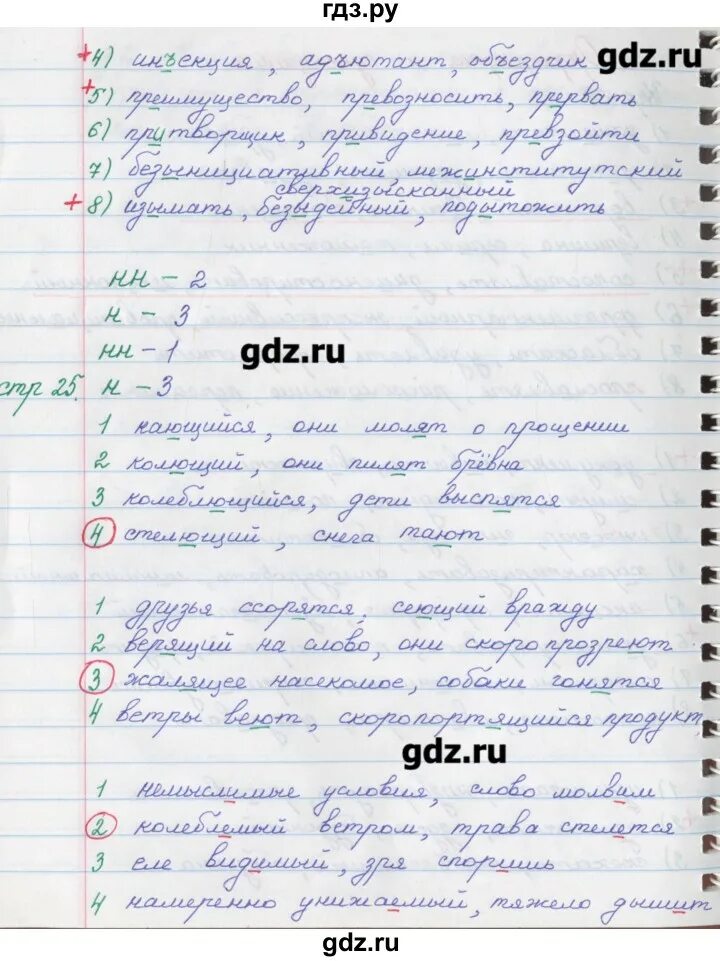 гдз.ру
+4) инъекция, адъютант, объездчик gdz.ru
+5) преимущество, превозносить, прервать
6) притворщик, привидение, превзойти
7) безынициативный межинститутский
сверхизысканный
+8) изымать, безыдейный, подытожить
нн - 2
н - 3
нн - 1 gdz.ru
стр 25. н - 3
1 кающийся, они молят о прощении
2 колющий, они пилят брёвна
3 колеблющийся, дети выспятся
4 стелющий, снега тают
1 друзья ссорятся, сеющий вражду
2 верящий на слово, они скоро прозреют
3 жалящее насекомое, собаки гонятся
4 ветры веют, скоропортящийся продукт,
gdz.ru
1 немыслимые условия, слово молвим
2 колеблемый ветром, трава стелется
3 еле видимый, зря споришь
4 намеренно унижаемый, тяжело дышит
gdz.ru